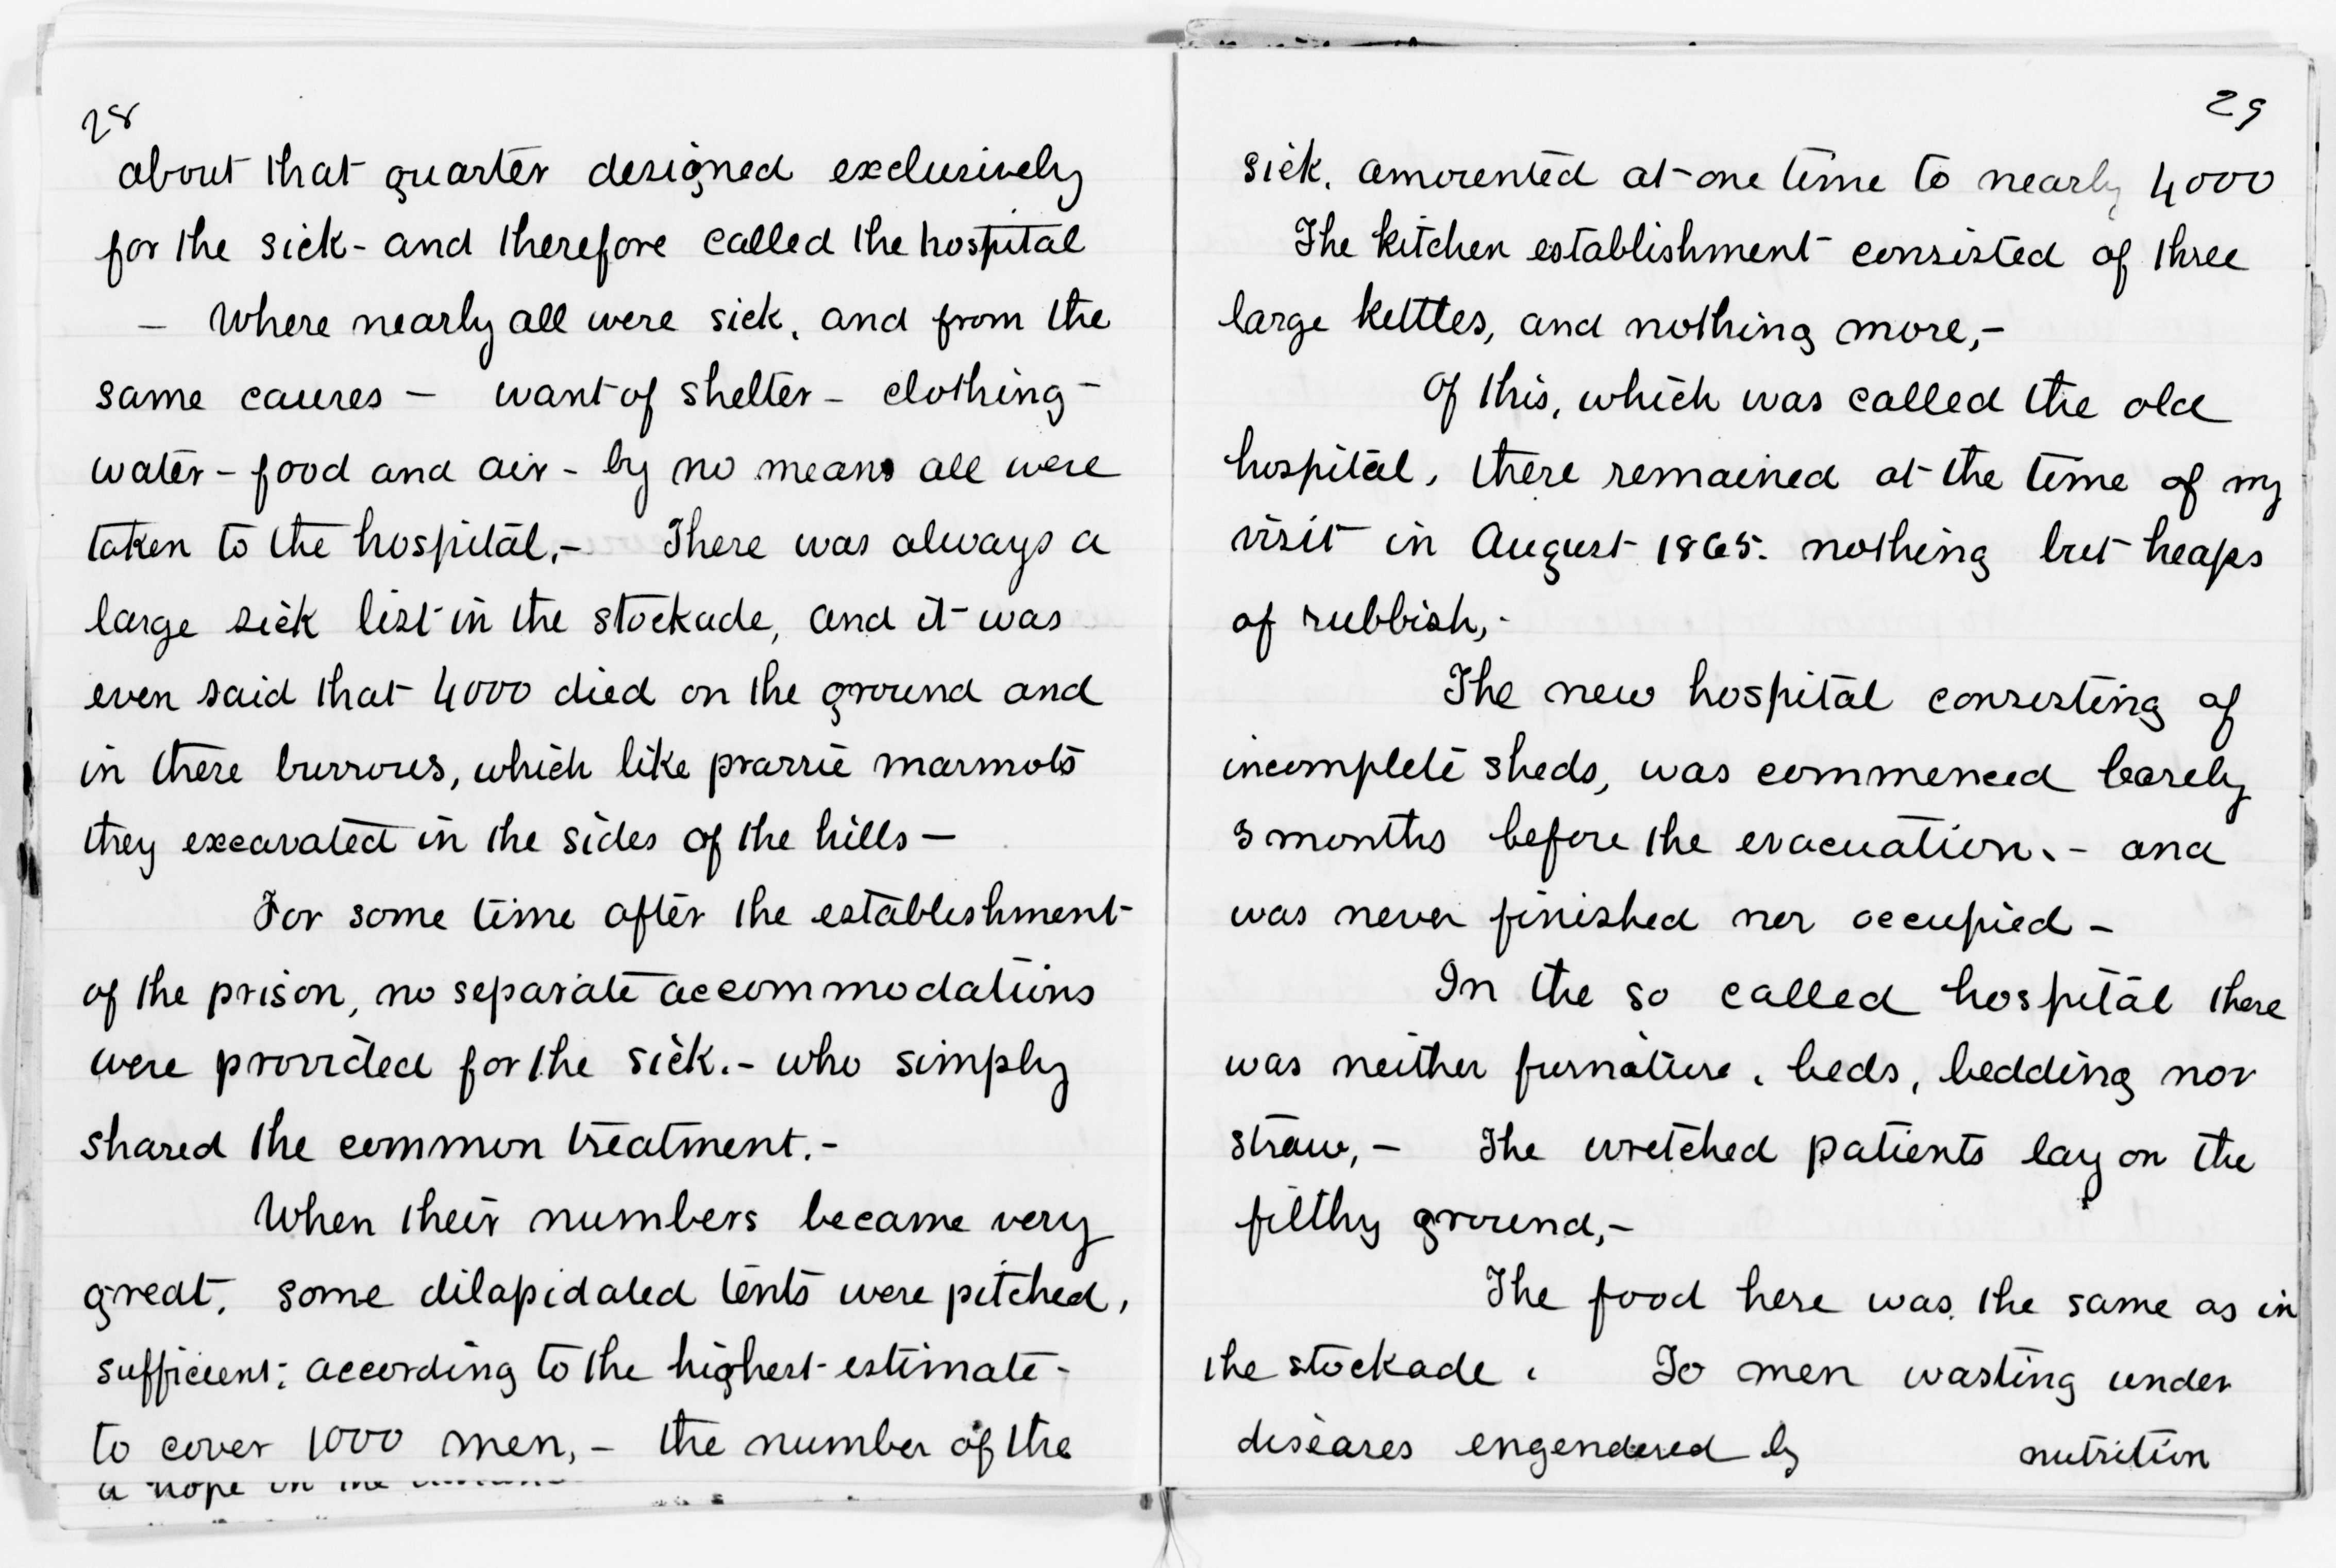 28
about that quarter designed exclusively
for the sick - and therefore called the hospital
— Where nearly all were sick, and from the
same causes — want of shelter - clothing -
water - food and air - by no means all were
taken to the hospital, - There was always a
large sick list in the stockade, and it was
even said that 4000 died on the ground and
in there burrows, which like prarrie marmots
they excavated in the sides of the hills —
For some time after the establishment
of the prison, no separate accommodations
were provided for the sick. - who simply
shared the common treatment. -
When their numbers became very
great, some dilapidated tents were pitched,
sufficient, according to the highest estimate -
to cover 1000 men, - the number of the
a hope in the
29
sick, amounted at one time to nearly 4000
The kitchen establishment consisted of three
large kettles, and nothing more, -
Of this, which was called the old
hospital, there remained at the time of my
visit in August 1865. nothing but heaps
of rubbish, -
The new hospital consisting of
incomplete sheds, was commenced barely
3 months before the evacuation, - and
was never finished nor occupied -
In the so called hospital there
was neither furnature, beds, bedding nor
straw, - The wretched patients lay on the
filthy ground, -
The food here was the same as in
the stockade. To men wasting under
diseases engendered by nutrition